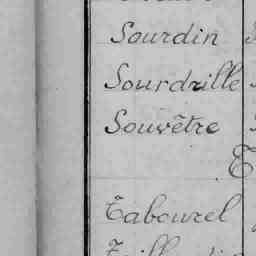 Sourdin
Sourdrille
Souvêtre
T
Tabourel